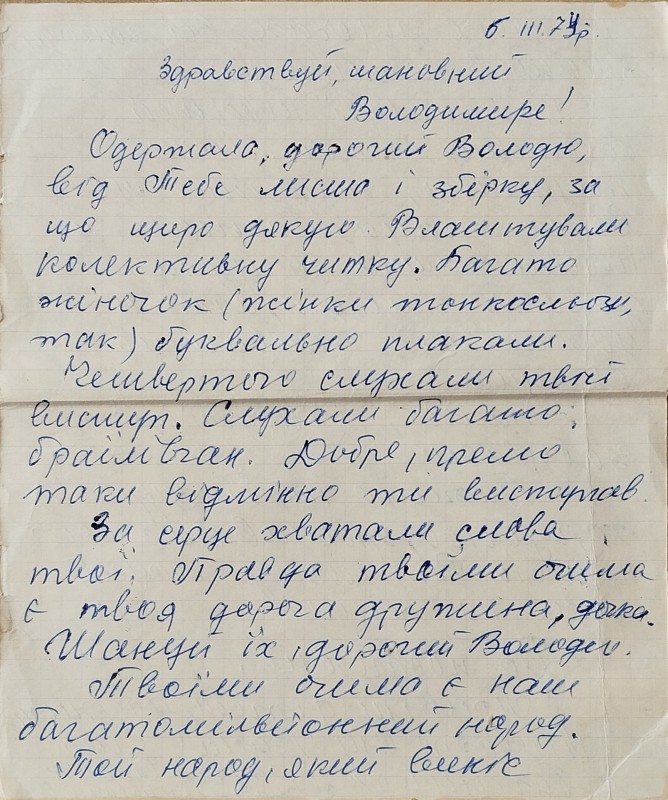 6. III. 74р.
Здравствуй, шановний
Володимире!
Одержала, дорогий Володю,
від Тебе листа і збірку, за
що щиро дякую. Влаштували
колективну читку. Багато
жіночок (жінки тонкосльози,
так) буквально плакали.
Четвертого слухали твій
виступ. Слухали багато
браїлівчан. Добре, прямо
таки відмінно ти виступав.
За серце хватали слова
твої. Правда твоїми очима
є твоя дорога дружина, дочка.
Шануй їх, дорогий Володю.
Твоїми очима є наш
багатомільйонний народ.
Той народ, який виніс